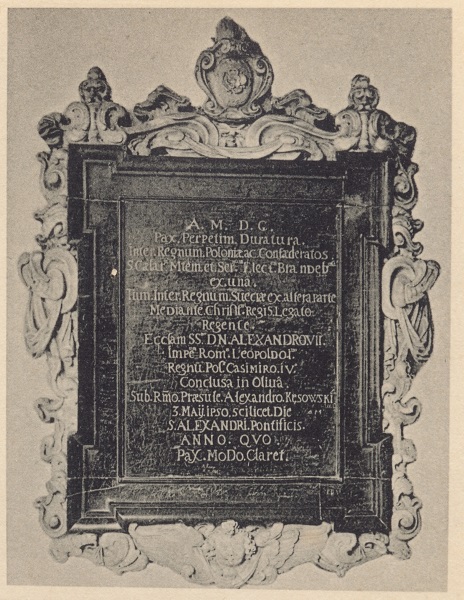 A. M. D. G.
Pax. Perpetim. Duratura.
Inter. Regnum. Poloniæ. ac. Confœderatos.
S. Cæsar. Mtem. et. Ser. Elec. Brandeb.
ex. una.
Tum. Inter. Regnum. Sueciæ ex. altera parte
Mediante. Christ. Regis. Legato.
Regente.
Ecclam SS. D. N. ALEXANDRO VII.
Impe. Rom. Leopoldo I.
Regnu. Pol. Casimiro. IV.
Conclusa in Oliva.
Sub. Rmo. Præsule. Alexandro. Kęsowski
3. Maij. ipso. scilicet. Die
S. ALEXANDRI. Pontificis.
ANNO. QVO.
PaX. MoDo. Claret.